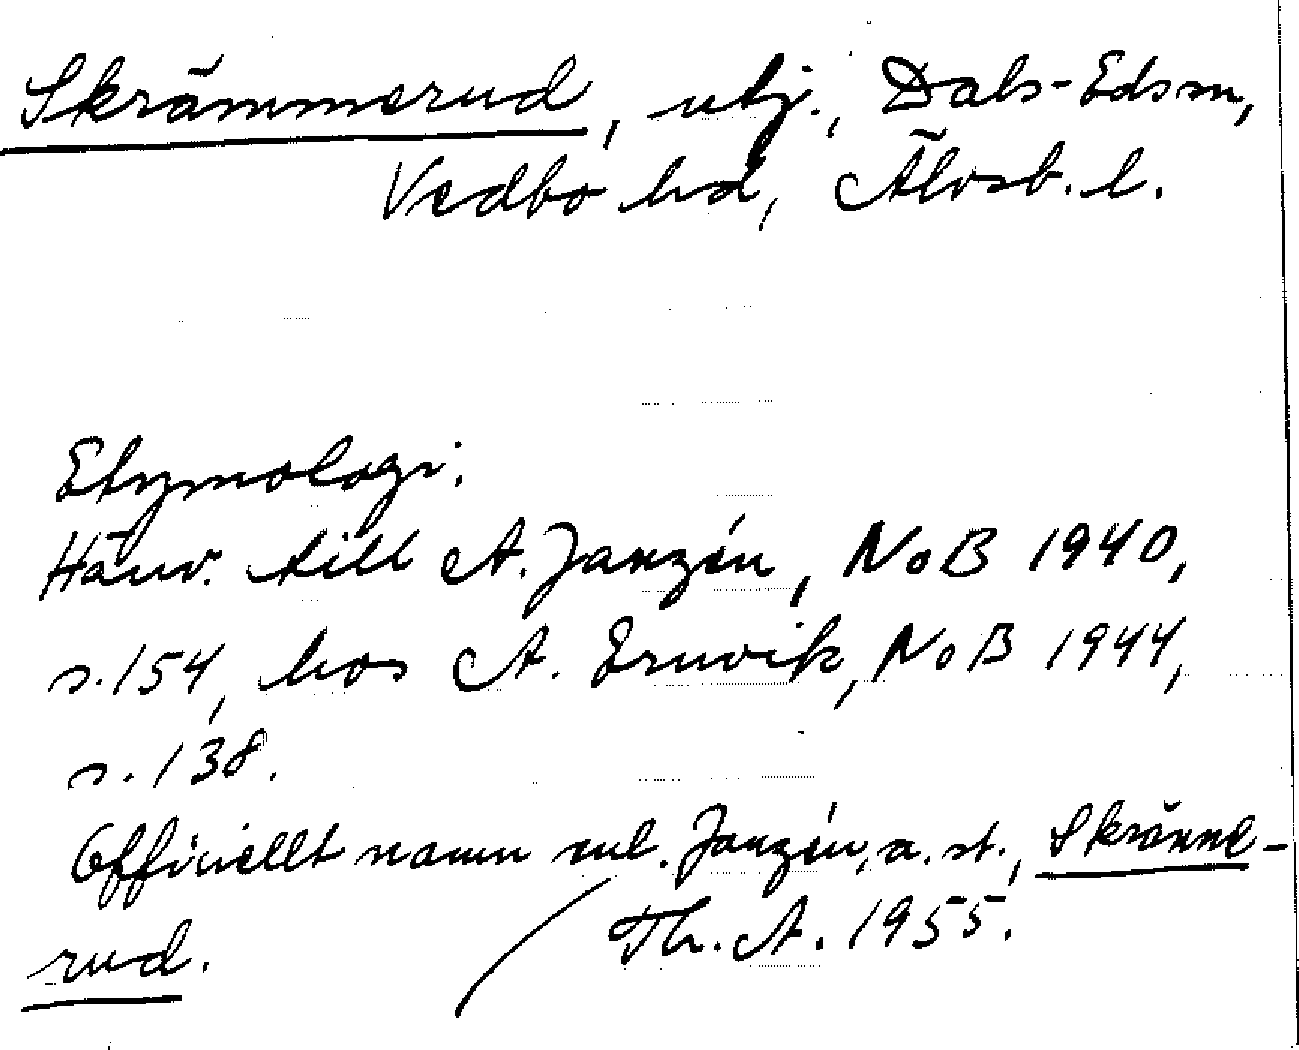 Skrämmerud, ubj., Dals-Edsm,
Vedbo hd, Älvsb. l.
Etymologi.
Hänv. till A. Janzén, NoB 1940,
s. 154, hos A. Ernvik, NoB 1944,
s. 138.
Officiellt namn enl. Janzén, a. st., Skränne-
rud.
Th. A. 1955.